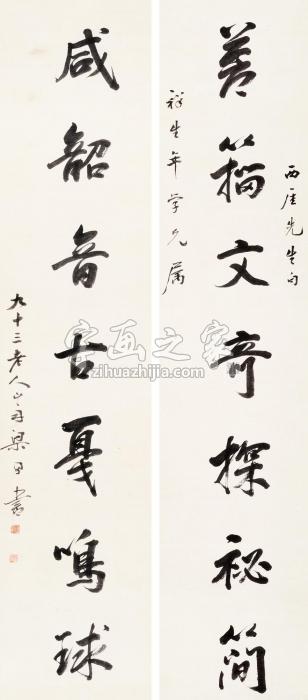 西厓先生句
蒼籀文奇探祕簡
祥生年学兄属
咸韶音古戛鳴球
九十三老人山舟梁同書
字画之家
zihuazhijia.com